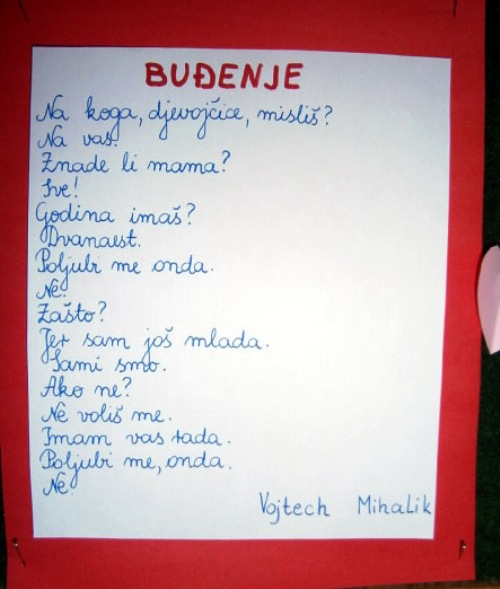 BUĐENJE
Na koga, djevojčice, misliš?
Na vas.
Znade li mama?
Sve!
Godina imaš?
Dvanaest.
Poljubi me onda.
Ne.
Zašto?
Jer sam još mlada.
Sami smo.
Ako ne?
Ne voliš me.
Imam vas rada.
Poljubi me, onda.
Ne.
Vojtech Mihalik